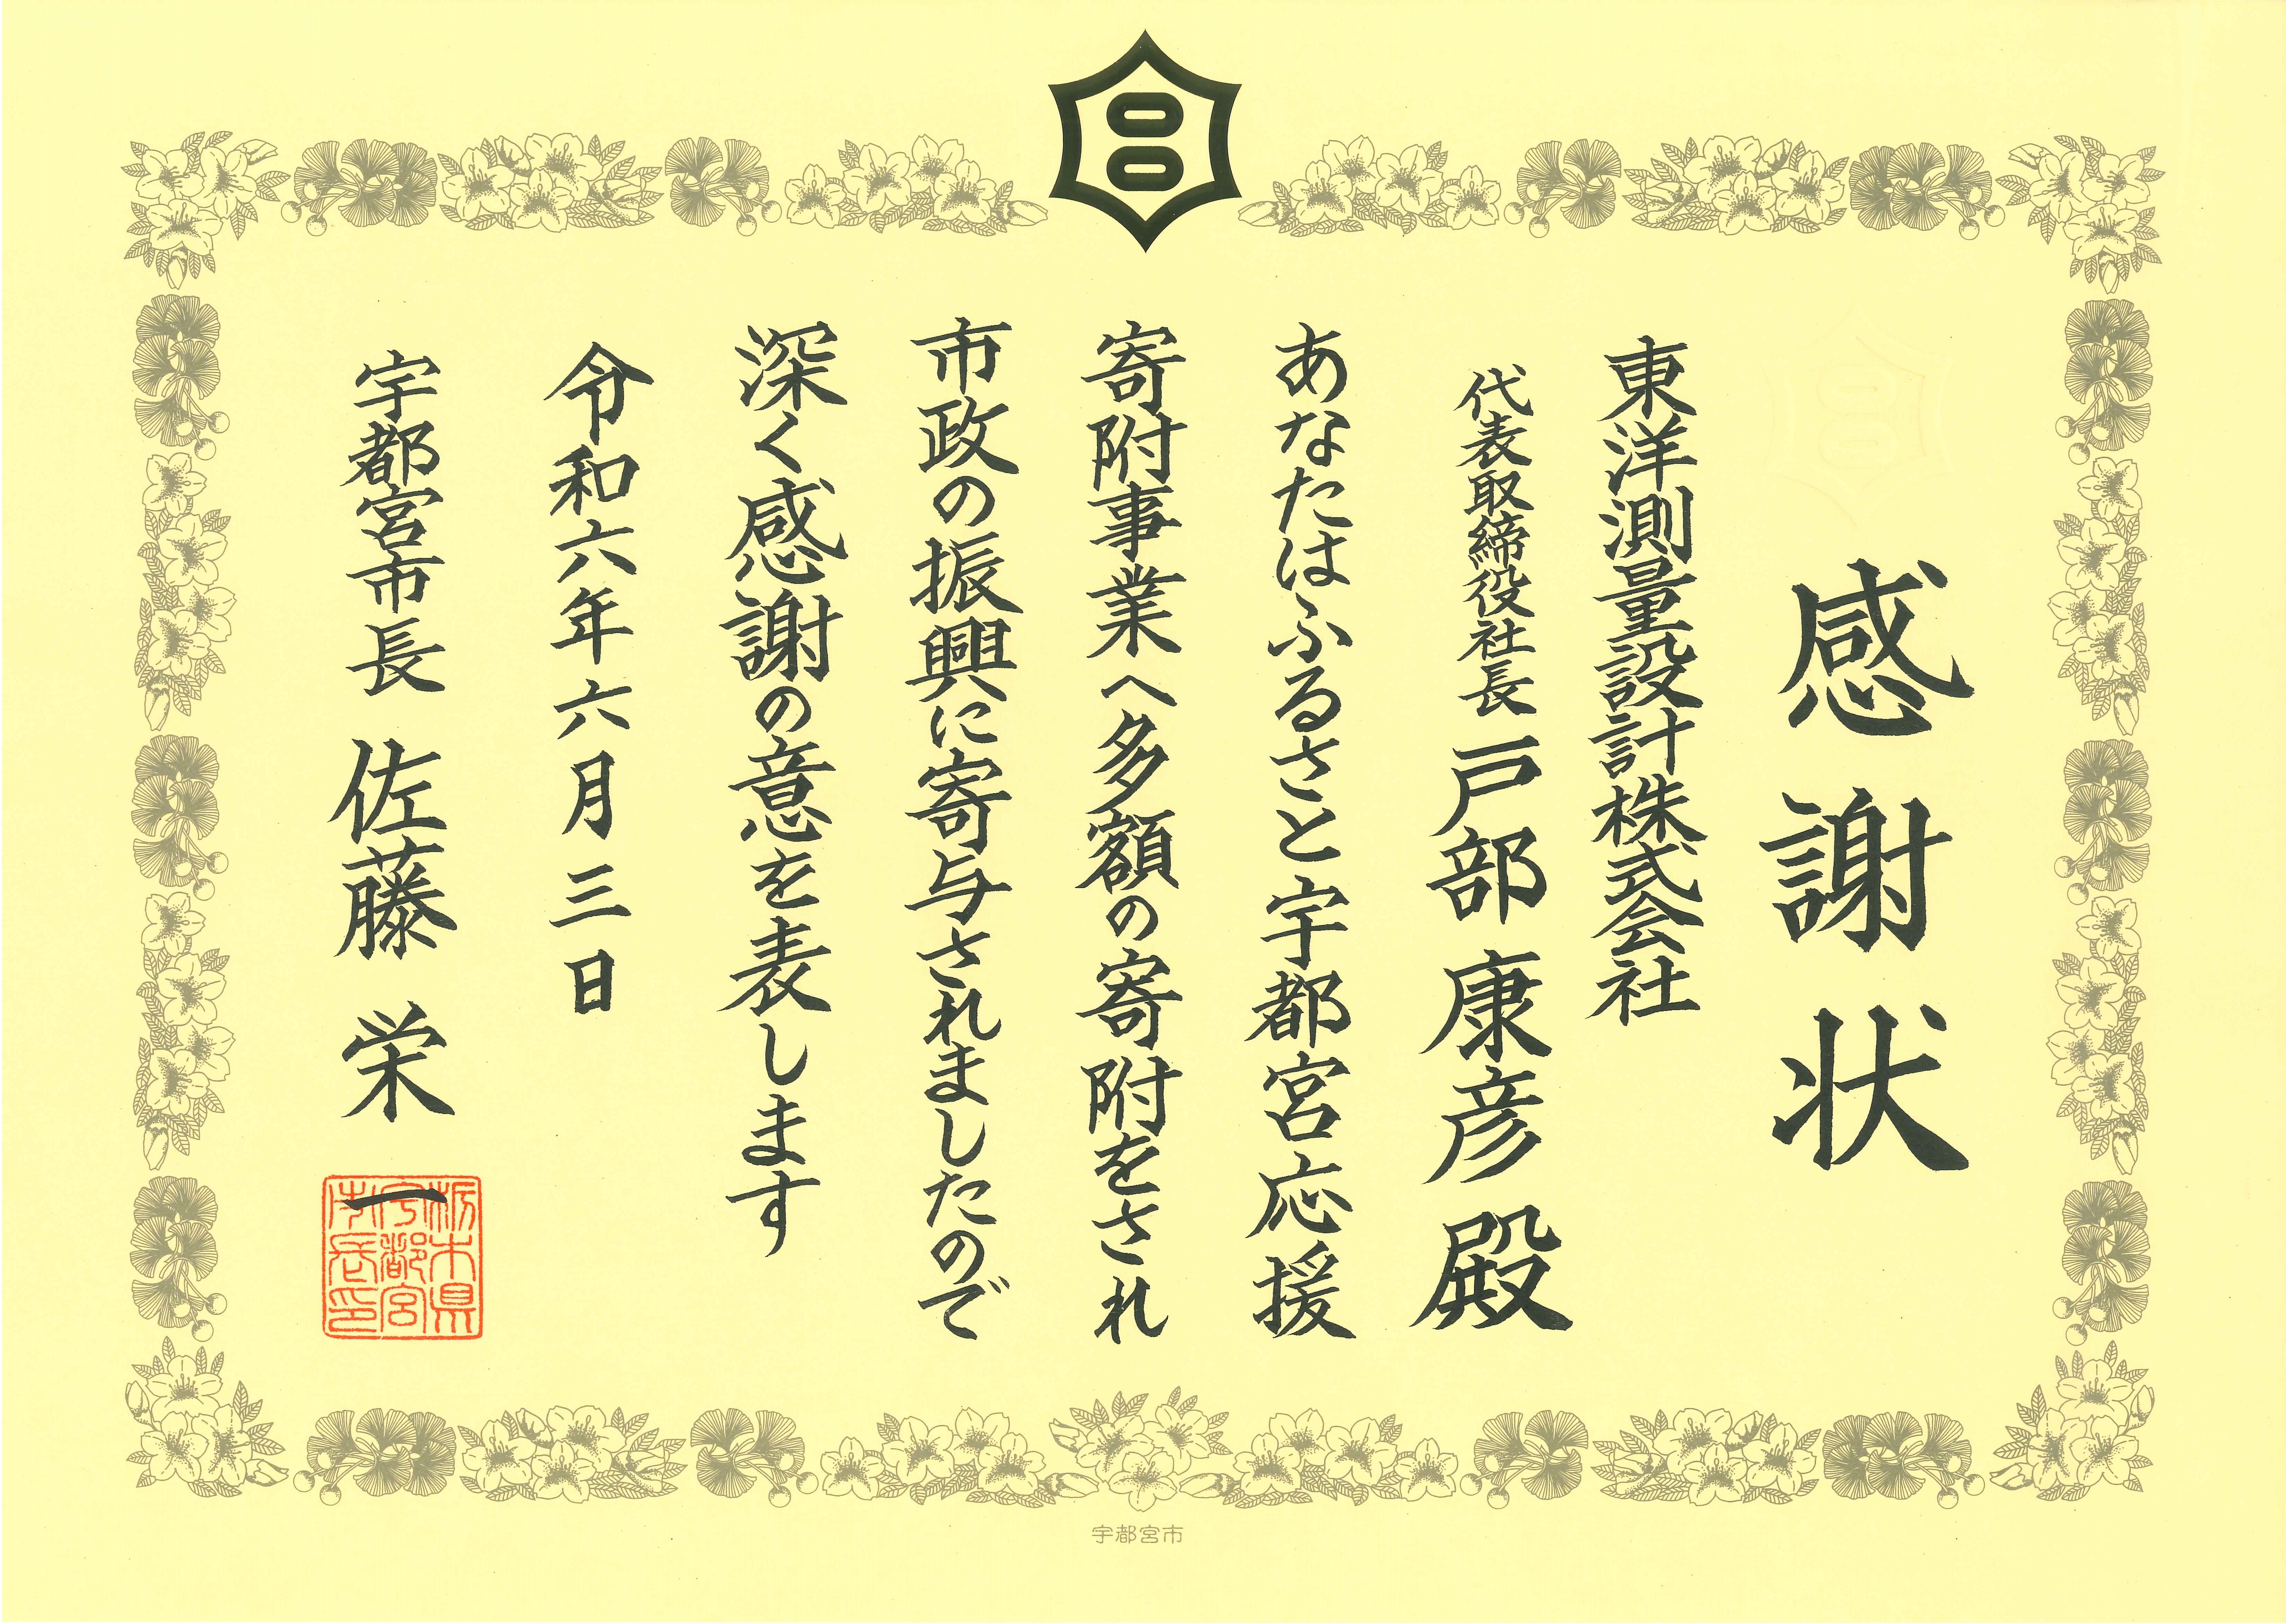 感謝状
東洋測量設計株式会社
代表取締役社長 戸部 康彦 殿
あなたはふるさと宇都宮応援
寄附事業へ多額の寄附をされ
市政の振興に寄与されましたので
深く感謝の意を表します
令和六年六月三日
宇都宮市長 佐藤 栄一
栃木県
宇都宮
市長印
宇都宮市